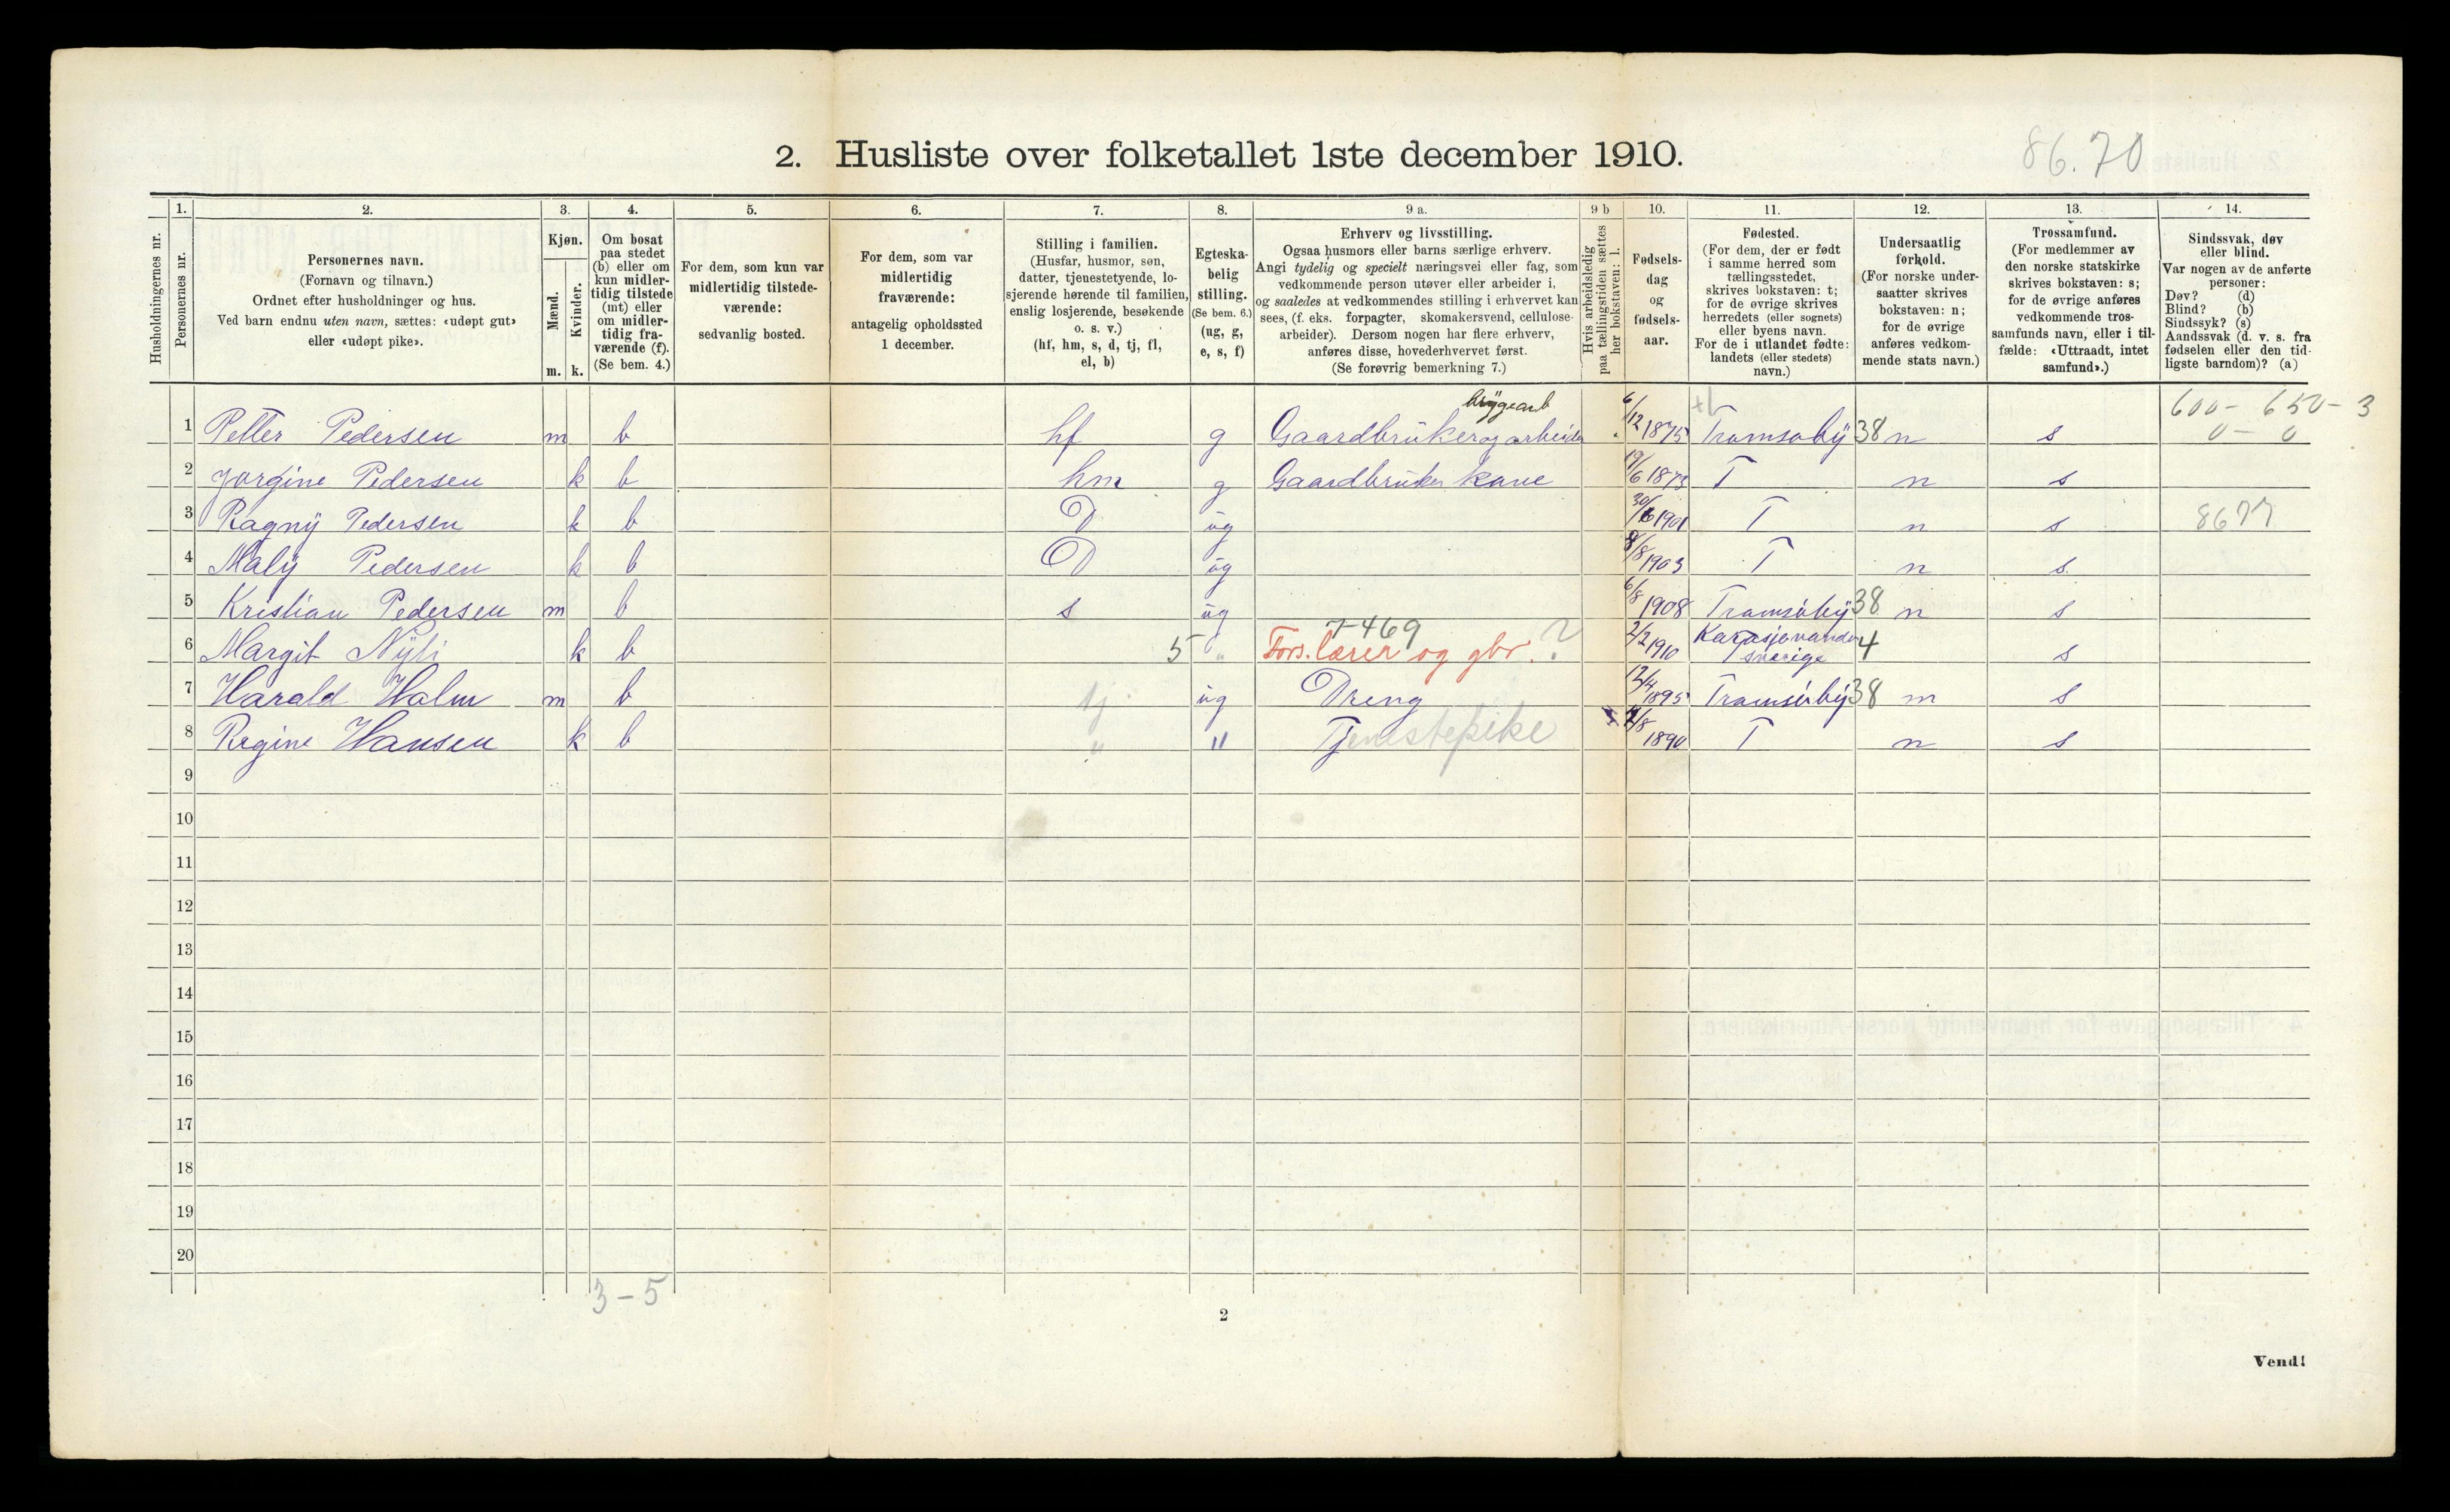 2. Husliste over folketallet 1ste december 1910.
86.70
Husholdningernes nr.
1.
Personernes nr.
2.
Personernes navn.
(Fornavn og tilnavn.)
Ordnet efter husholdninger og hus.
Ved barn endnu uten navn, sættes: «udøpt gut»
eller «udøpt pike».
3.
Kjøn.
Mænd.
Kvinder.
m. k.
4.
Om bosat
paa stedet
(b) eller om
kun midler-
tidig tilstede
(mt) eller
om midler-
tidig fra-
værende (f).
(Se bem. 4.)
5.
For dem, som kun var
midlertidig tilstede-
værende:
sedvanlig bosted.
6.
For dem, som var
midlertidig
fraværende:
antagelig opholdssted
1 december.
7.
Stilling i familien.
(Husfar, husmor, søn,
datter, tjenestetyende, lo-
sjerende hørende til familien,
enslig losjerende, besøkende
o. s. v.)
(hf, hm, s, d, tj, fl,
el, b)
8.
Egteska-
belig
stilling.
(Se bem. 6.)
(ug, g,
e, s, f)
9 a.
Erhverv og livsstilling.
Ogsaa husmors eller barns særlige erhverv.
Angi tydelig og specielt næringsvei eller fag, som
vedkommende person utøver eller arbeider i,
og saaledes at vedkommendes stilling i erhvervet kan
sees, (f. eks. forpagter, skomakersvend, cellulose-
arbeider). Dersom nogen har flere erhverv,
anføres disse, hovederhvervet først.
(Se forøvrig bemerkning 7.)
9 b
Hvis arbeidsledig
paa tællingstiden sættes
her bokstaven: l.
10.
Fødsels-
dag
og
fødsels-
aar.
11.
Fødested.
(For dem, der er født
i samme herred som
tællingsstedet,
skrives bokstaven: t;
for de øvrige skrives
herredets (eller sognets)
eller byens navn.
For de i utlandet fødte:
landets (eller stedets)
navn.)
12.
Undersaatlig
forhold.
(For norske under-
saatter skrives
bokstaven: n;
for de øvrige
anføres vedkom-
mende stats navn.)
13.
Trossamfund.
(For medlemmer av
den norske statskirke
skrives bokstaven: s;
for de øvrige anføres
vedkommende tros-
samfunds navn, eller i til-
fælde: «Uttraadt, intet
samfund».)
14.
Sindssvak, døv
eller blind.
Var nogen av de anførte
personer:
Døv? (d)
Blind? (b)
Sindssyk? (s)
Aandssvak (d. v. s. fra
fødselen eller den tid-
ligste barndom)? (a)
600 - 650 - 3
1 Petter Pedersen m b hf g Gaardbruker og arbeider 6/12 1875 Tromsøby 38 n s 0 - 0
2 Jørgine Pedersen k b hm g Gaardbruker kone 19/6 1873 T n s
3 Ragny Pedersen k b D ug 30/6 1901 T n s 8677
4 Maly Pedersen k b D ug 8/8 1903 T n s
5 Kristian Pedersen m b s ug 6/8 1908 Tromsøby 38 n s
7-469
6 Margit Nyli k b 5 " Fors. lærer og gbr. ? 2/2 1910 Sverige 4 s
7 Harald Holm m b tj ug Dreng 12/4 1895 Tromsøby 38 m s
8 Regine Hansen k b " " Tjenestepike 4/8 1890 T n s
9
10
11
12
13
14
15
16
17
18
19
20
3 - 5
2
Vend!